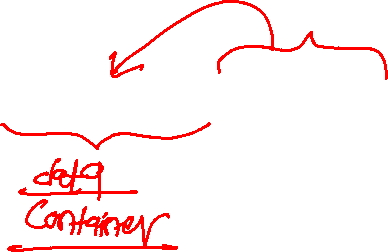 data
Container